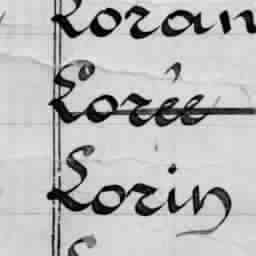 Loran
Lorée
Lorin